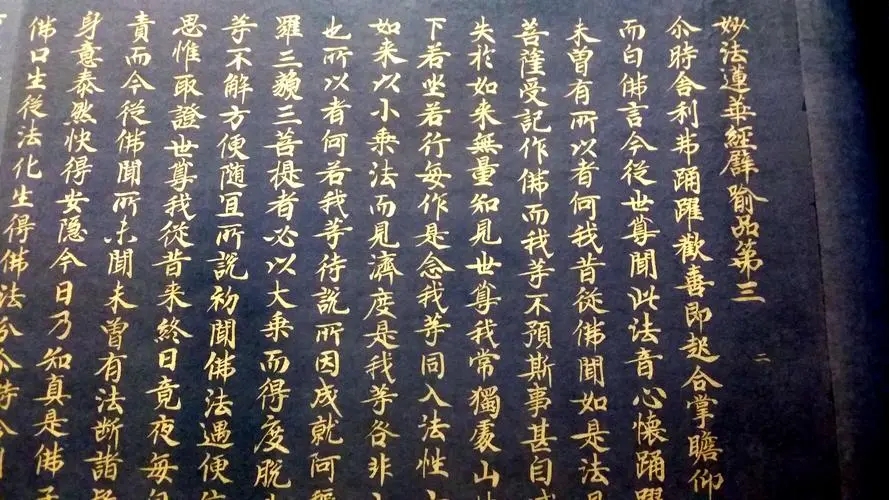 妙法蓮華經譬喻品第三
二
尒時舎利弗踊躍歡喜即起合掌瞻仰
而白佛言今從世尊聞此法音心懷踊躍
未曽有所以者何我昔從佛聞如是法見
菩薩受記作佛而我䒭不預斯事甚自感
失於如来無量知見世尊我常獨處山林
下若坐若行每作是念我䒭同入法性
如来以小乗法而見濟度是我䒭咎非
也所以者何若我䒭待說所因成就阿耨
羅三藐三菩提者必以大乗而得度脫
䒭不解方便随冝所說初聞佛法遇便信
思惟取證世尊我從昔来終日竟夜每自
責而今從佛聞所未聞未曽有法断諸疑
身意泰然快得安隱今日乃知真是佛子
佛口生從法化生得佛法分尒時舎利